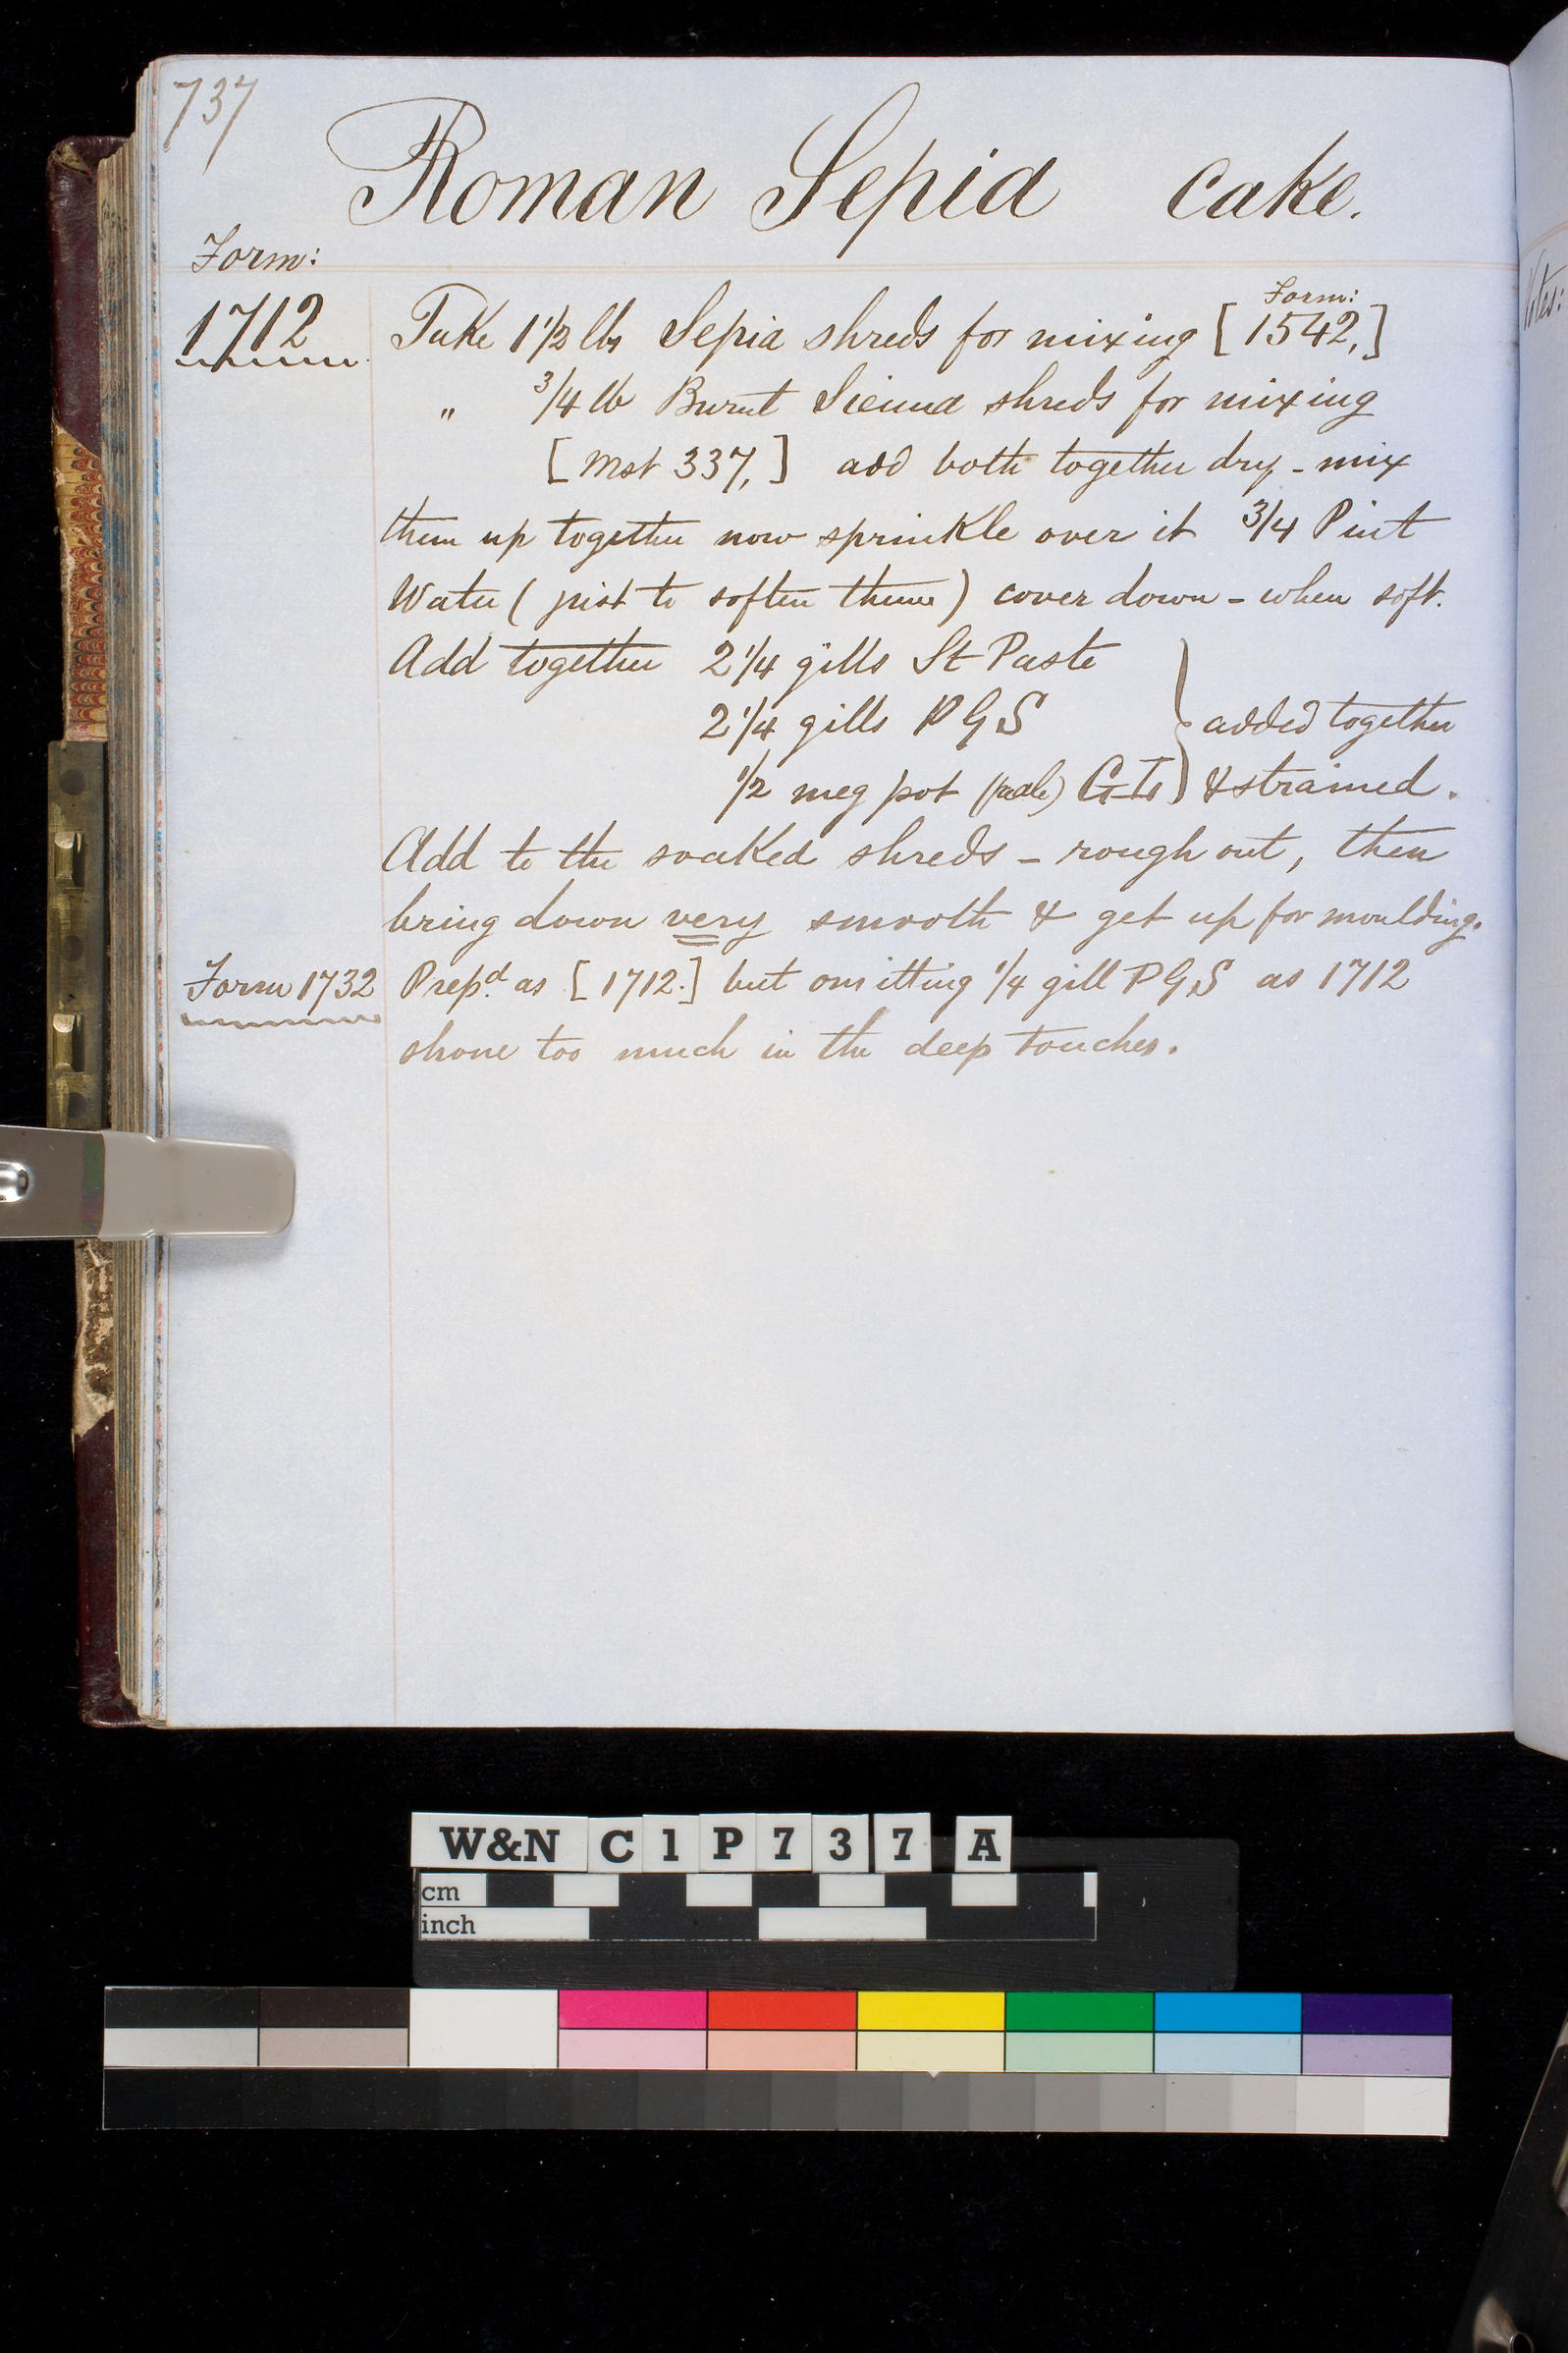 737
Roman Sepia cake.
Form:
1712
Take 1 1/2 lbs Sepia shreds for mixing [Form: 1542,]
" 3/4 lb Burnt Sienna shreds for mixing
[Mst 337,] add both together dry - mix
them up together now sprinkle over it 3/4 Pint
Water (just to soften them) cover down - when soft.
Add together 2 1/4 gills St Paste
2 1/4 gills P G S
1/2 meg pot } added together & strained.
Add to the soaked shreds - rough out, then
bring down very smooth & get up for moulding.
Form 1732 Prepd. as [1712.] but omitting 1/4 gill P G S as 1712
shone too much in the deep touches.
W&N C1P737A
cm
inch